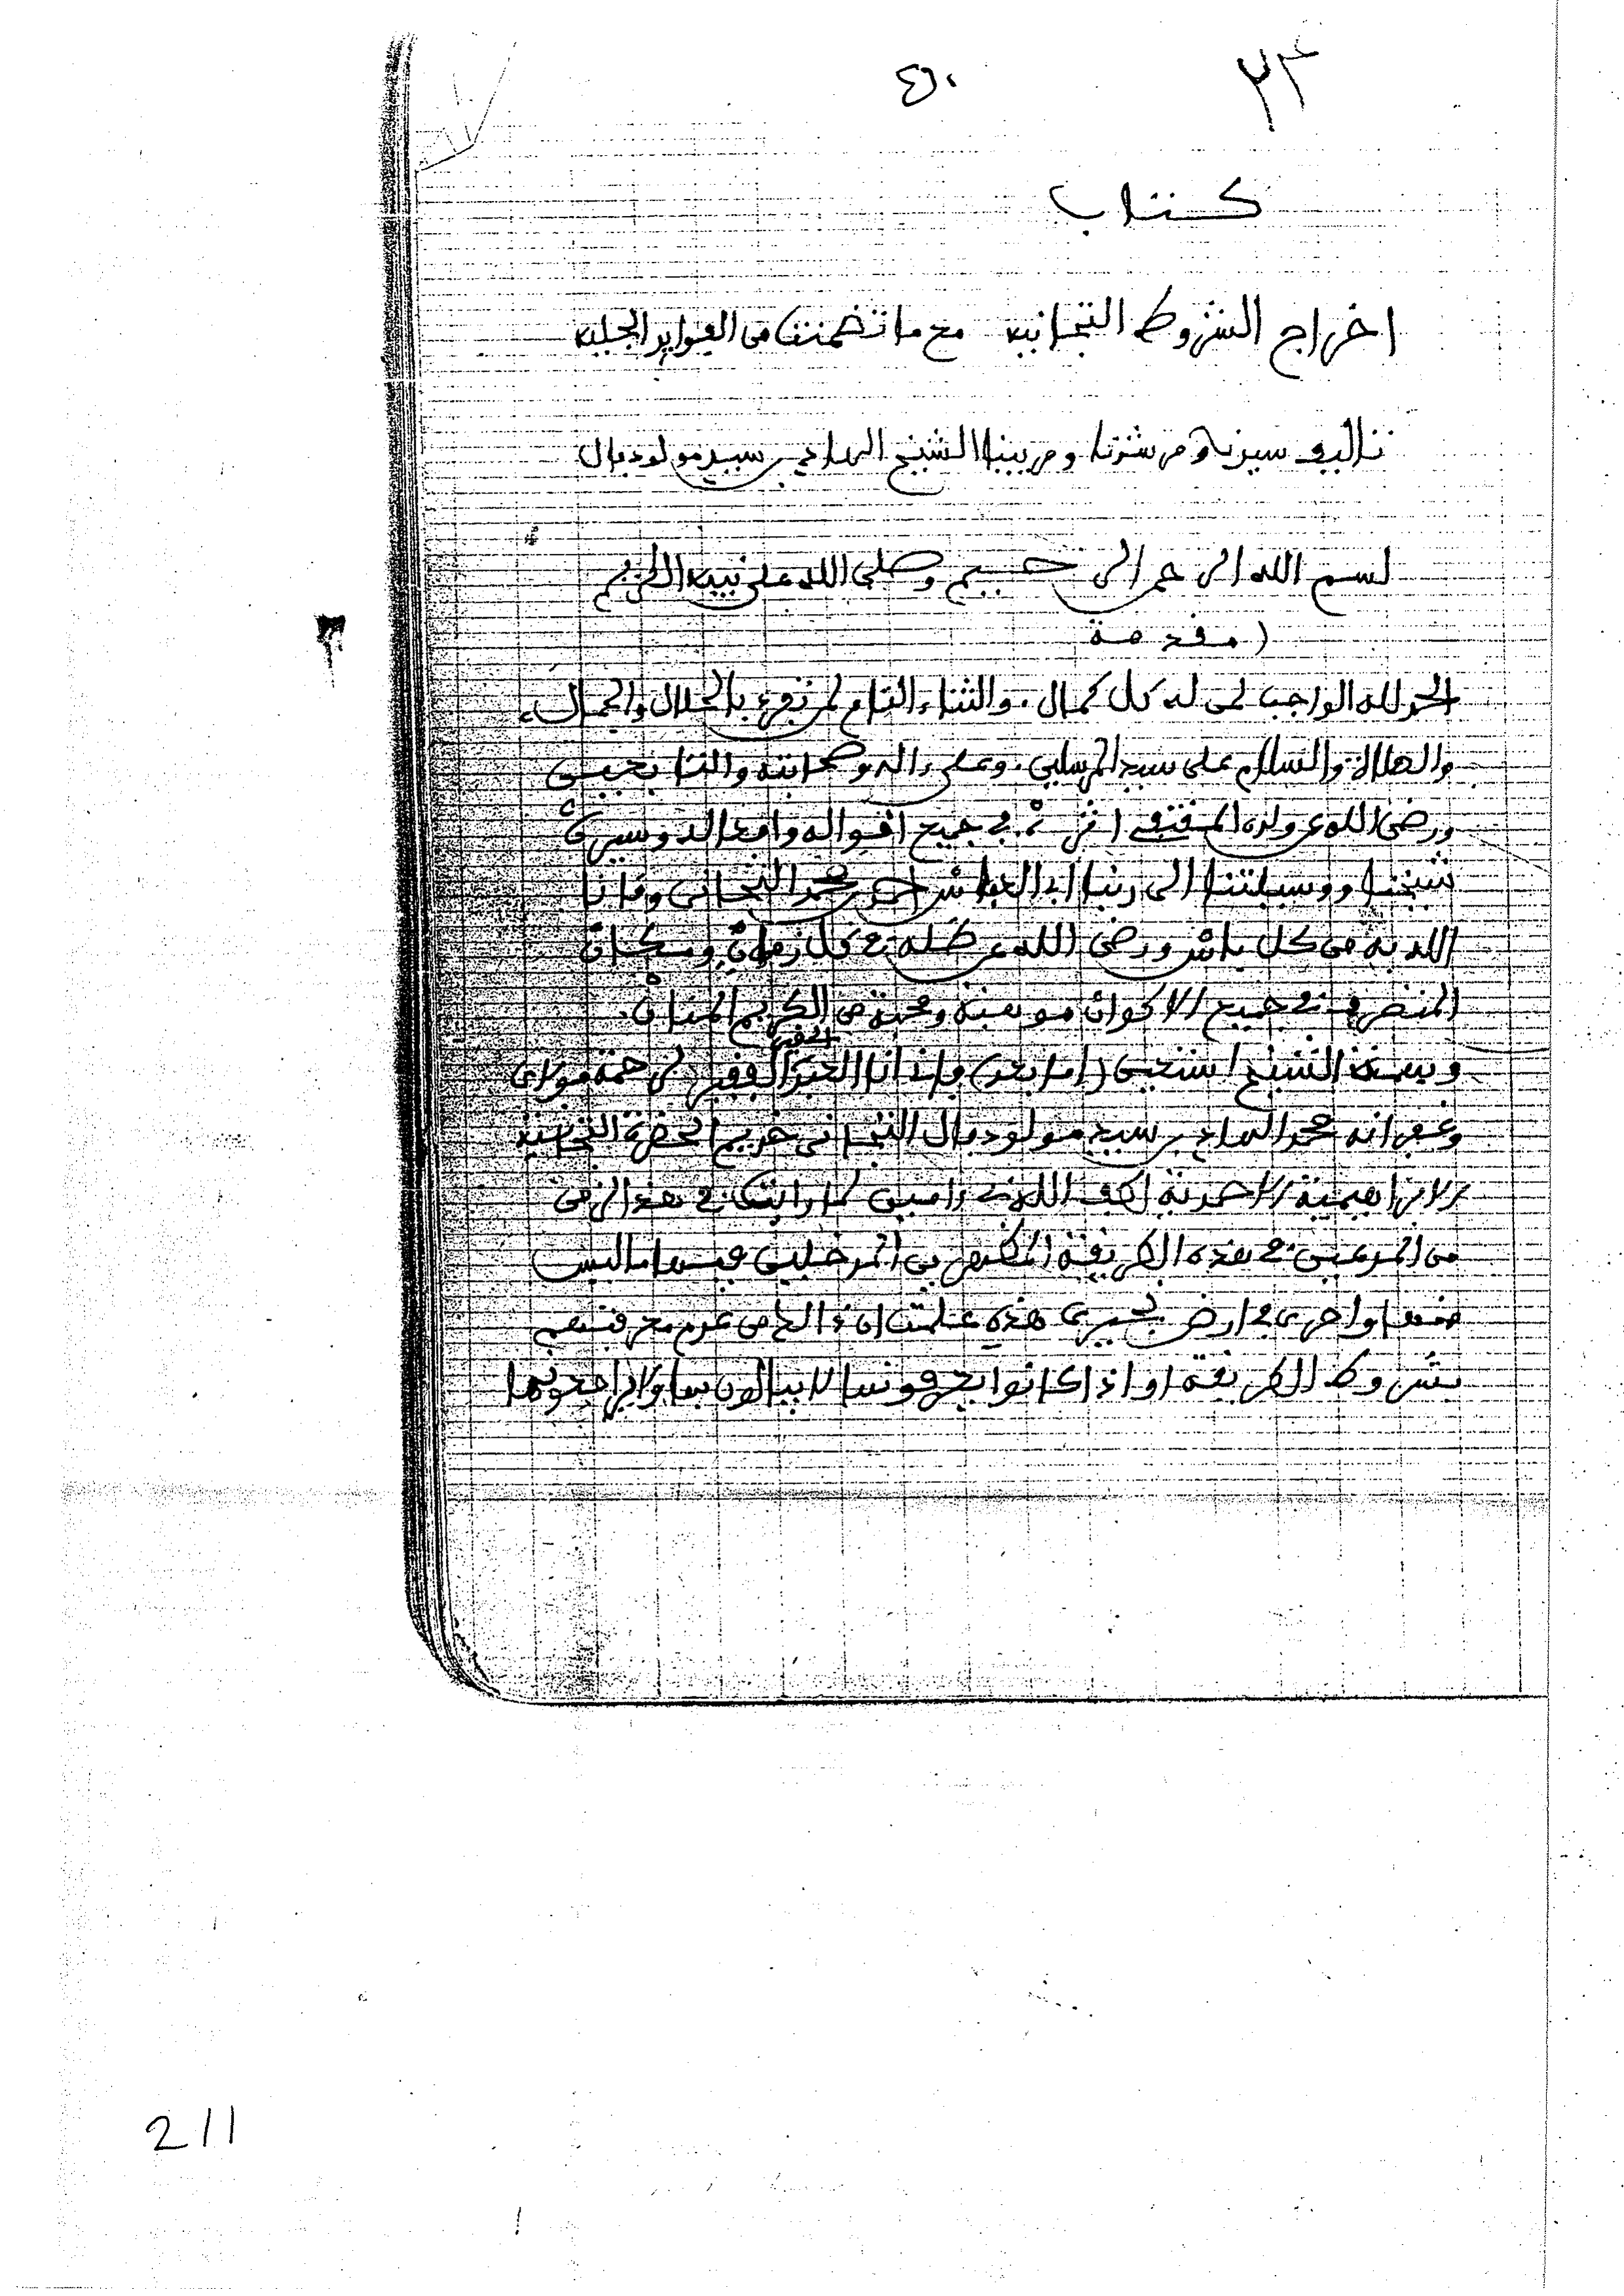 ٢٣ ٤٥٠
كتاب
اخراج الشروط التجانيه مع ما تضمنت من الفوايد الجليه
تاليف سيدنا ومرشدنا ومربينا الشيخ الهادي بن سيد مولود فال
بسم الله الرحمن الرحيم وصلي الله على نبيه الكريم
(مقدمة
الحمد لله الواجب لمن له كل كمال. والثناء التام لمن تفرد بالجلال والجمال.
والصلاة والسلام على سيد المرسلين. وعلى ءاله وصحابته والتابعين
ورضى الله عن ولده المقتفى اثره في جميع اقواله وافعاله وسيره
شيخنا ووسيلتنا الى ربنا ابى العباس احمد بن محمد التجانى وقانا
الله به من كل باس ورضى الله عن ظله في كل زمان ومكان
المتصرف في جميع الاكوان موهبة ومحبة من الكريم المنان.
الشيخ (اما بعد) فإذ انا العبد الحقير الفقير الى رحمة مولاه
وغفرانه محمد الهادي بن سيد مولود فال التجانى خديم الحضرة التجانية
الابراهيمية الاحمدية لطف الله به ءامين لما رايت في هذا الزمن
من المدعين في هذه الطريقة المظهرين المدخلين فيها ما ليس
منها واحرى في ارض نجيريا هذه علمت ان ذالك من عدم معرفتهم
بشروط الطريقة او اذا كانوا يعرفونها لا يبالون بها ولا يراجعونها
211